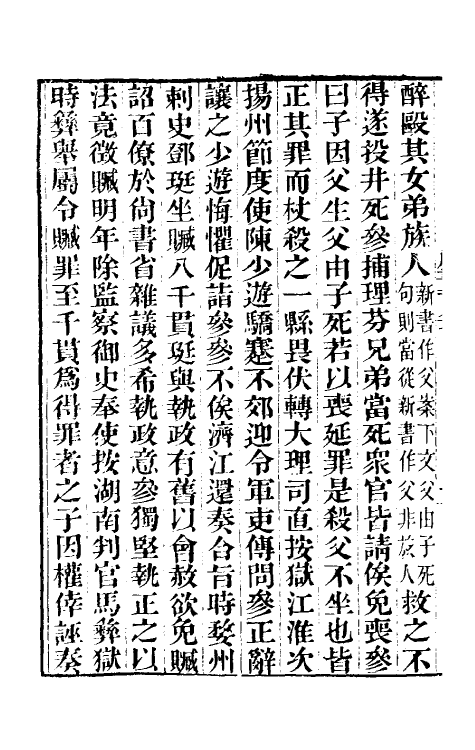 醉毆其女弟族人新書作父案下文父由子死句則當從新書作父非族人救之不
得遂投井死參捕理芬兄弟當死眾官皆請俟免喪參
曰子因父生父由子死若以喪延罪是殺父不坐也皆
正其罪而杖殺之一縣畏伏轉大理司直按獄江淮次
揚州節度使陳少遊驕蹇不郊迎令軍吏傳問參正辭
讓之少遊悔懼促詣參參不俟濟江還奏合旨時婺州
刺史鄧珽坐贓八千貫珽與執政有舊以會赦欲免贓
詔百僚於尚書省雜議多希執政意參獨堅執正之以
法竟徵贓明年除監察御史奉使按湖南判官馬彝獄
時彝舉屬令贓罪至千貫為得罪者之子因權倖誣奏